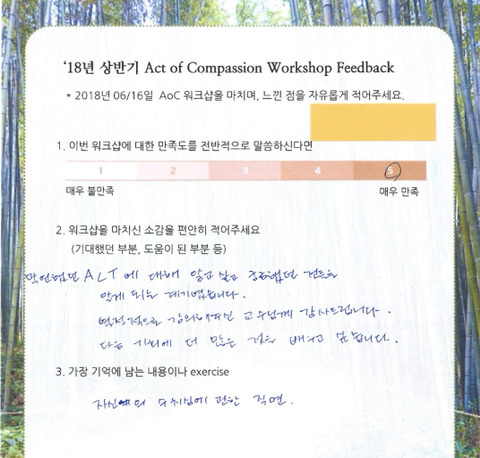 ‘18년 상반기 Act of Compassion Workshop Feedback
* 2018년 06/16일 AoC 워크샵을 마치며, 느낀 점을 자유롭게 적어주세요.
1. 이번 워크샵에 대한 만족도를 전반적으로 말씀하신다면
1 2 3 4 5
매우 불만족 매우 만족
2. 워크샵을 마치신 소감을 편안히 적어주세요
(기대했던 부분, 도움이 된 부분 등)
막연했던 ALT에 대해 알고 싶고 궁금했던 것들을
알게 되는 계기였습니다.
열정적으로 강의해주신 교수님께 감사드립니다.
다음 기회에 더 많은 것을 배우고 싶습니다.
3. 가장 기억에 남는 내용이나 exercise
자신에의 수치심에 관한 직면.